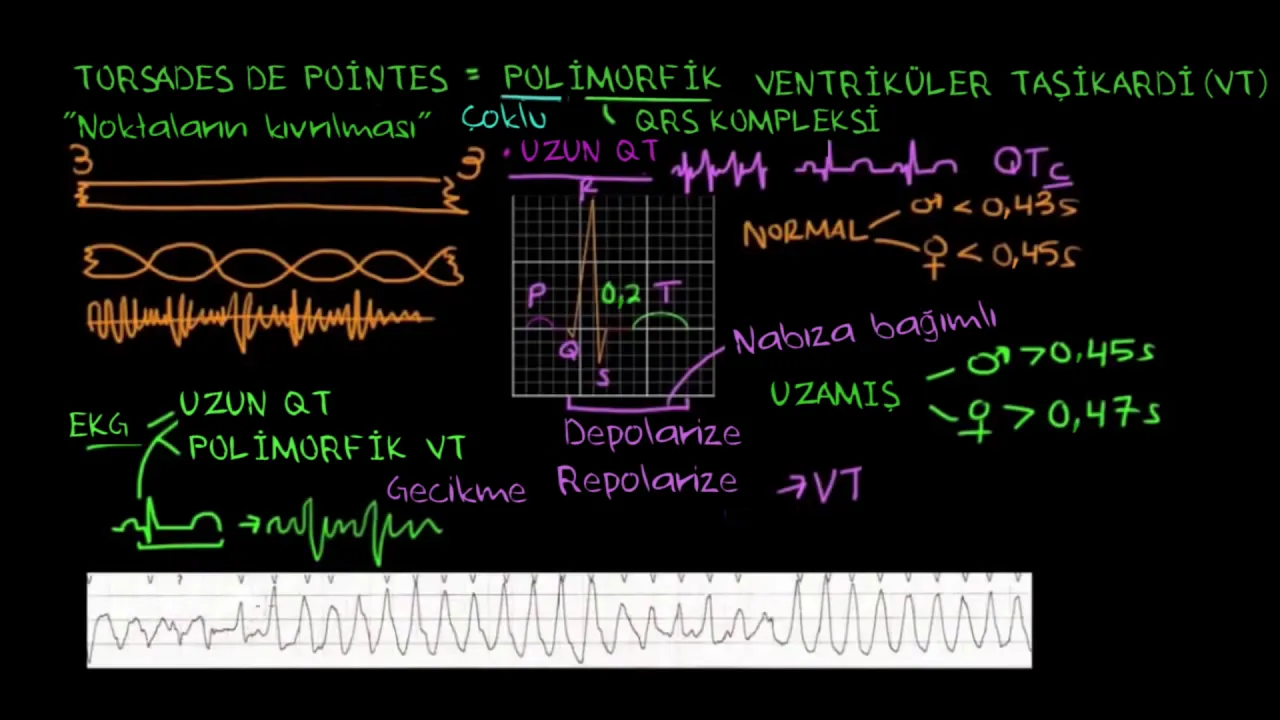 TORSADES DE POİNTES = POLİMORFİK VENTRİKÜLER TAŞİKARDİ (VT)
"Noktaların kıvrılması" Çoklu QRS KOMPLEKSİ
• UZUN QT
QTc
NORMAL
♂ < 0,43s
♀ < 0,45s
R
P
0,2
T
Q
S
Nabıza bağımlı
UZAMIŞ
♂ > 0,45s
♀ > 0,47s
Depolarize
Repolarize
Gecikme
→ VT
EKG
UZUN QT
POLİMORFİK VT